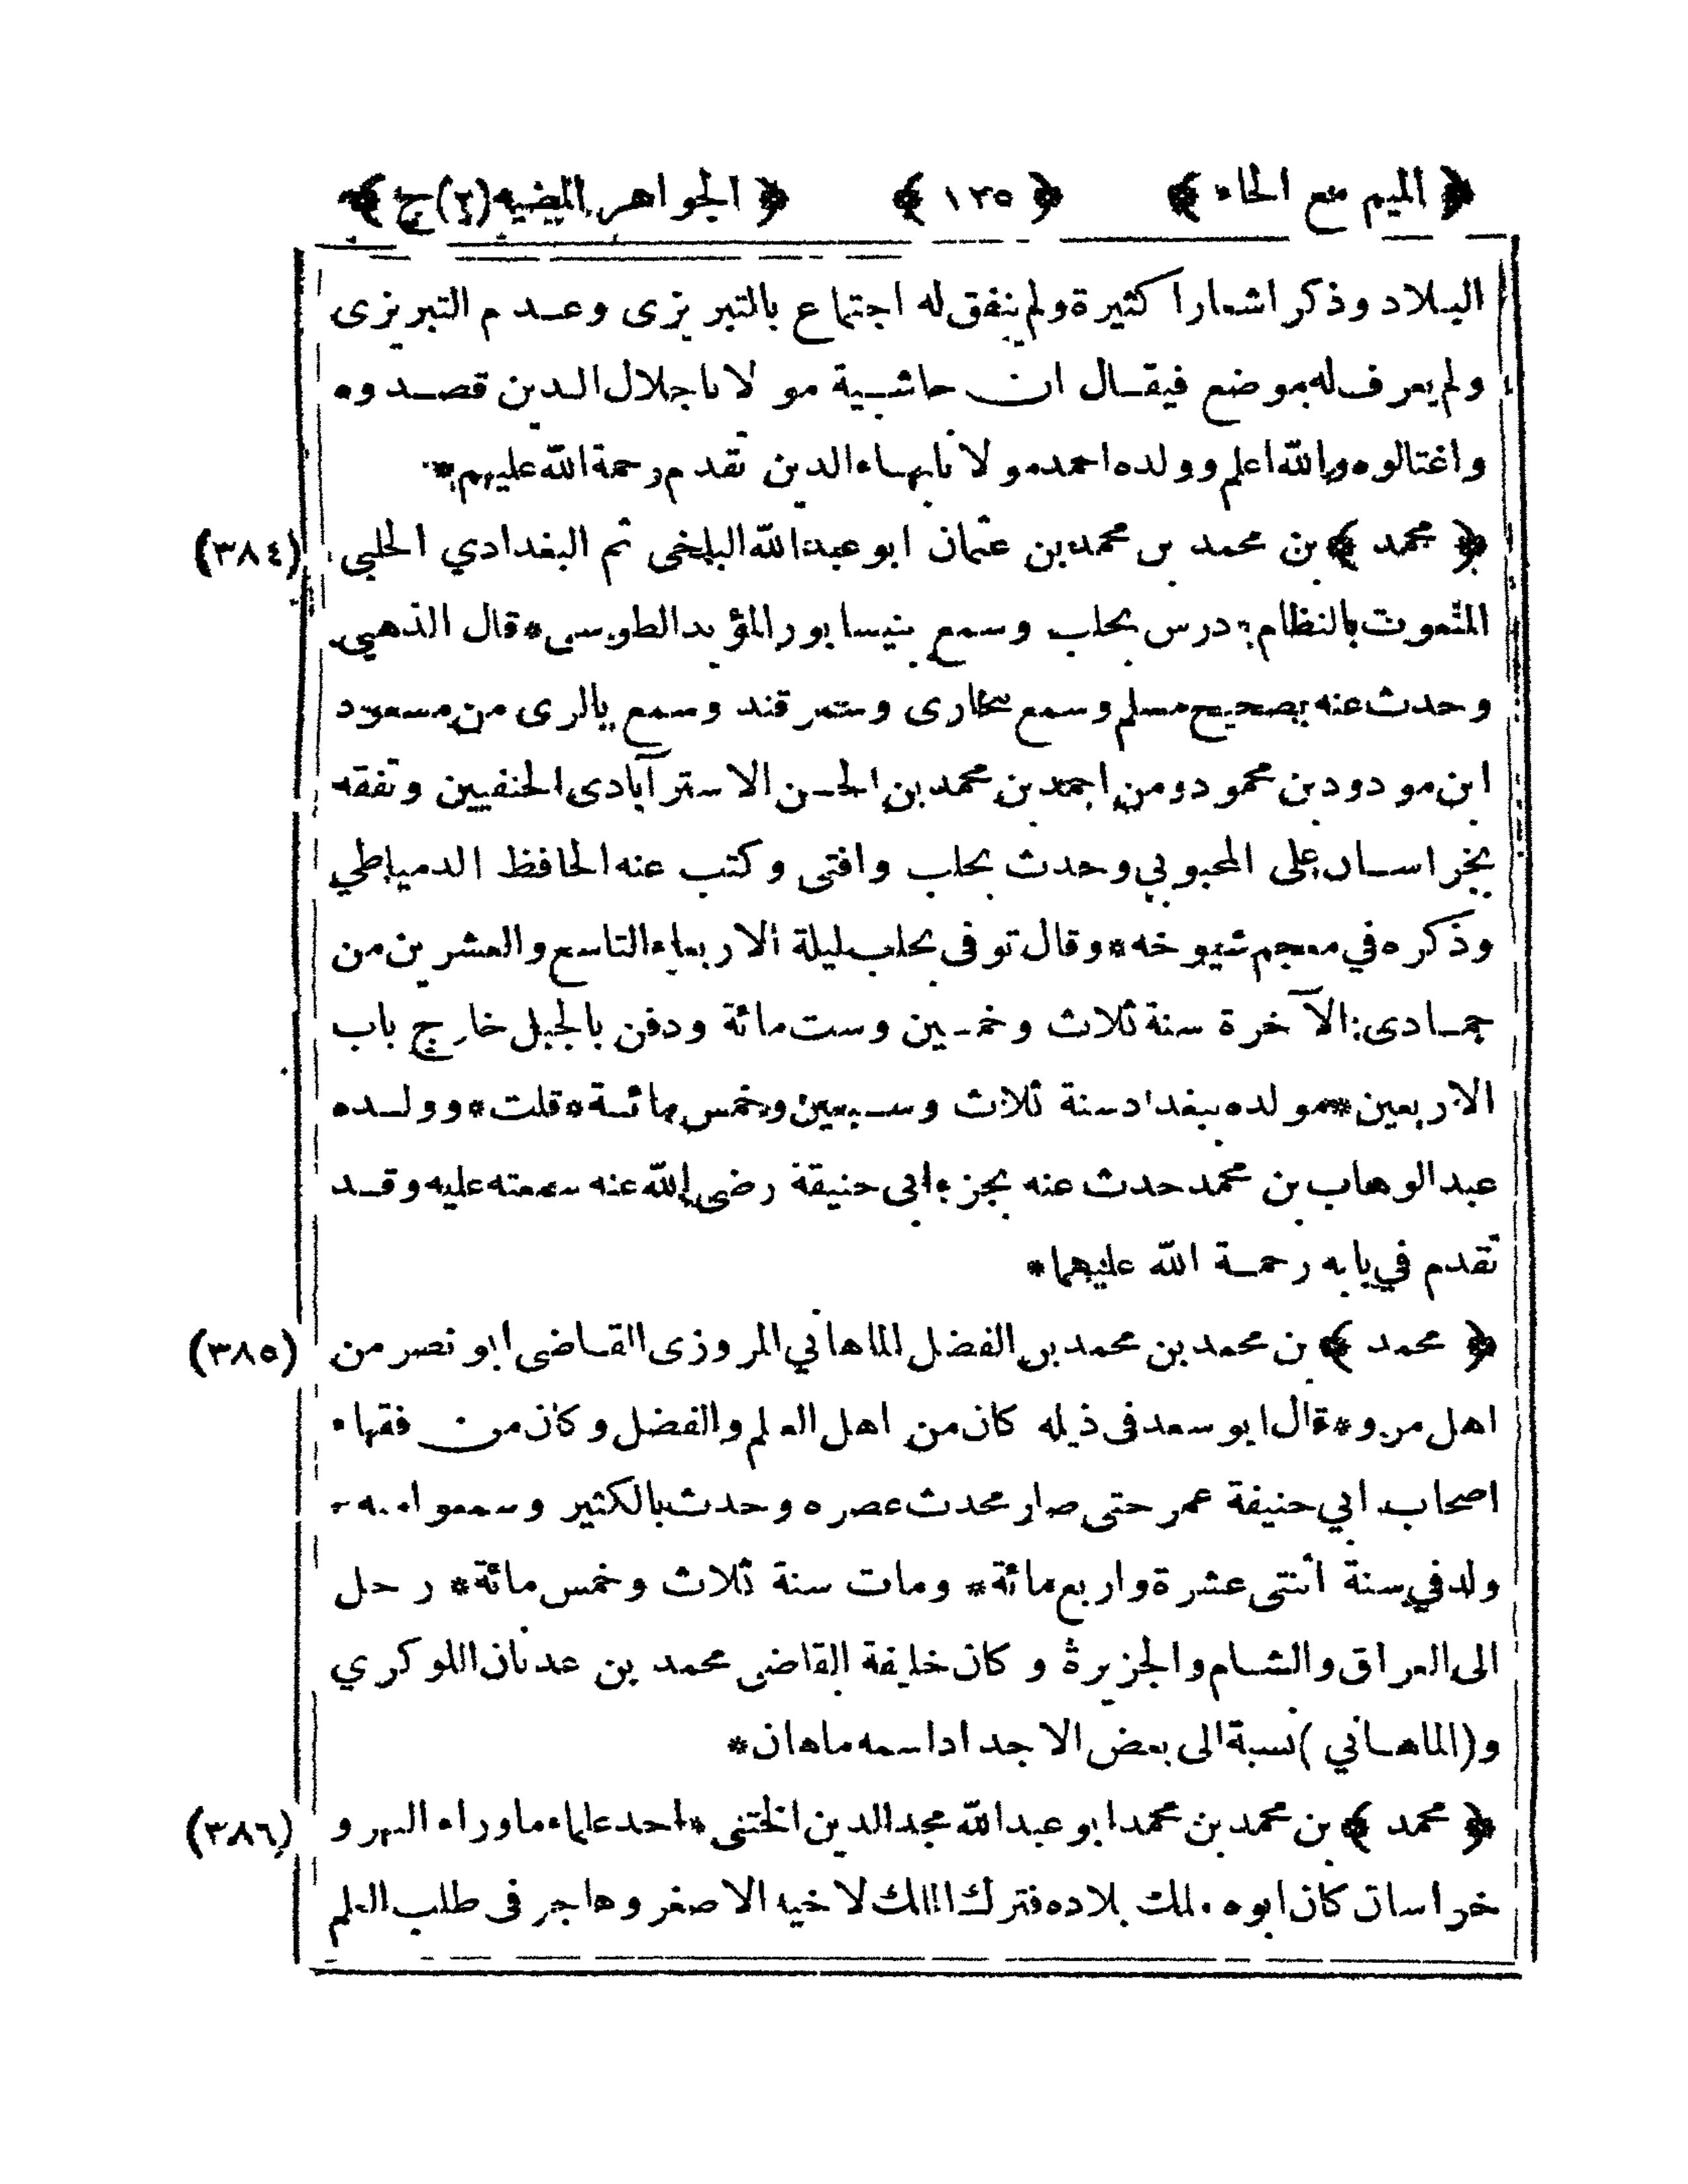 ﴿ الميم مع الحاء ﴾ ﴿ ١٢٥ ﴾ ﴿ الجواهر المضيه (٢) ج ﴾
البلاد وذكر اشعارا كثيرة ولم يتفق له اجتماع بالتبريزى وعدم التبريزى
ولم يعرف له موضع فيقال ان حاشية مولانا جلال الدين قصدوه
واغتالوه والله اعلم وولده احمد مولانا بهاء الدين تقدم رحمة الله عليهم*
﴿ محمد ﴾ بن محمد بن محمد بن عثمان ابو عبد الله البلخى ثم البغدادي الحلبي (٣٨٤)
المنعوت بالنظام* درس بحلب وسمع بنيسابور المؤيد الطوسى* قال الذهبي
وحدث عنه بصحيح مسلم وسمع بخارى وسمرقند وسمع بالرى من مسعود
ابن مودود بن محمود ومن احمد بن محمد بن الحسن الاسترآبادى الحنفيين وتفقه
بخراسان على المحبوبي وحدث بحلب وافتى وكتب عنه الحافظ الدمياطي
وذكره في معجم شيوخه* وقال توفى بحلب ليلة الاربعاء التاسع والعشرين من
جمادى الآخرة سنة ثلاث وخمسين وست مائة ودفن بالجبل خارج باب
الاربعين* مولده ببغداد سنة ثلاث وسبعين وخمس مائة* قلت* وولده
عبد الوهاب بن محمد حدث عنه بجزء ابى حنيفة رضى الله عنه سمعته عليه وقد
تقدم في بابه رحمة الله عليهما*
﴿ محمد ﴾ بن محمد بن محمد بن الفضل الماهاني المروزى القاضى ابو نصر من (٣٨٥)
اهل مرو* قال ابو سعد فى ذيله كان من اهل العلم والفضل وكان من فقهاء
اصحاب ابي حنيفة عمر حتى صار محدث عصره وحدث بالكثير وسمعوا منه
ولد في سنة اثنتى عشرة واربع مائة* ومات سنة ثلاث وخمس مائة* رحل
الى العراق والشام والجزيرة وكان خليفة القاضى محمد بن عدنان اللوكري
و (الماهاني) نسبة الى بعض الاجداد اسمه ماهان*
﴿ محمد ﴾ بن محمد بن محمد ابو عبد الله مجد الدين الختنى* احد علماء ماوراء النهر و (٣٨٦)
خراسان كان ابوه ملك بلاده فترك الملك لاخيه الاصغر وهاجر فى طلب العلم